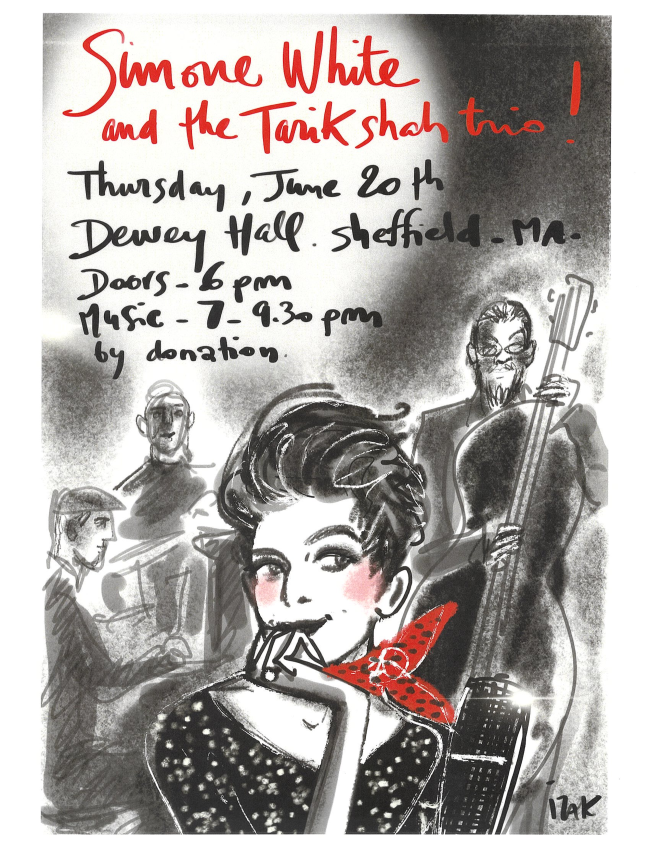 Simone White
and the Tarik shah trio !
Thursday, June 20th
Dewey Hall. sheffield - MA.
Doors - 6 pm
Music - 7 - 9.30 pm
by donation.
izak